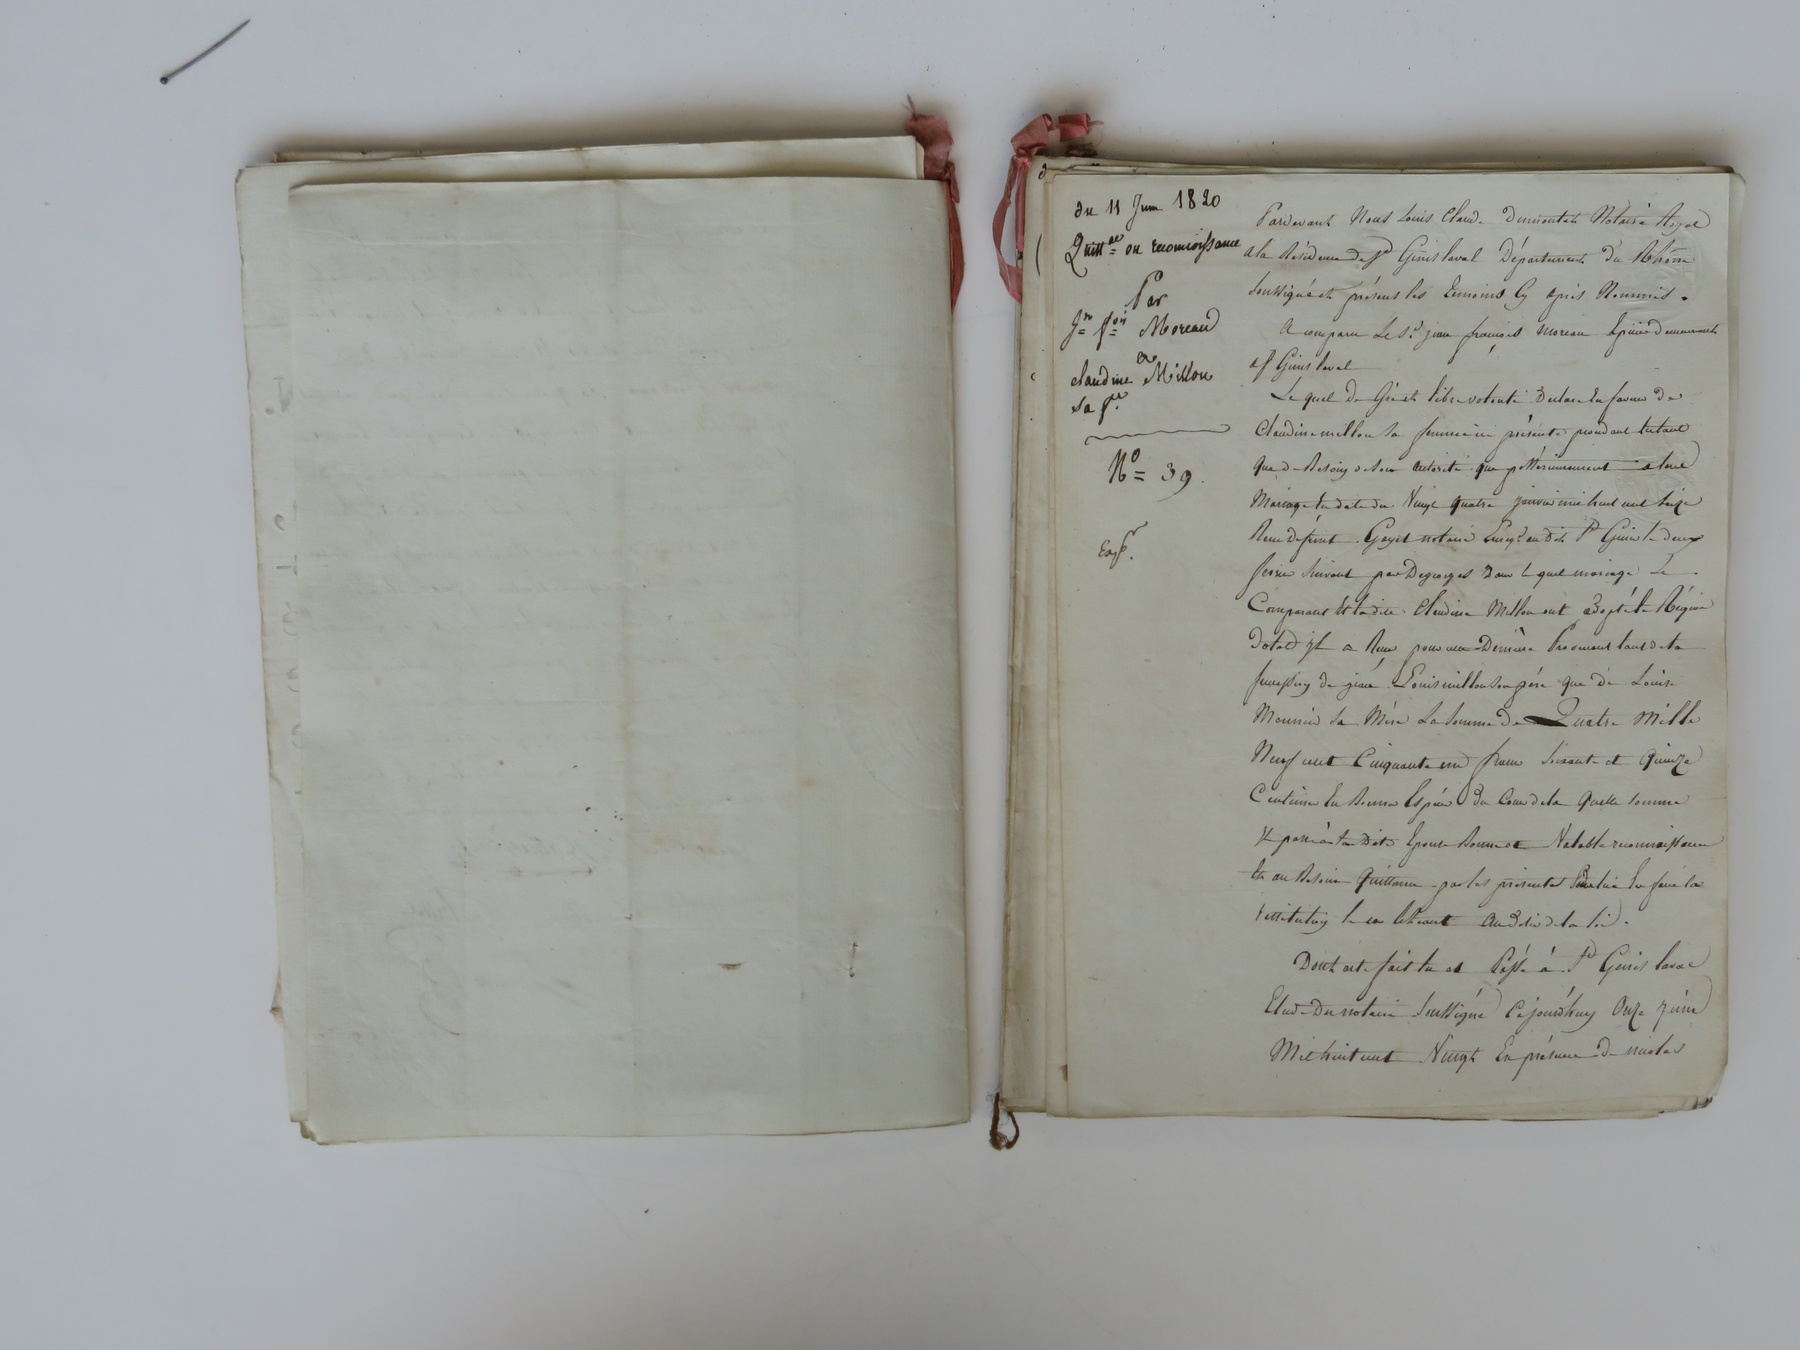 du 11 Juin 1820
Quitt.ce ou reconnoissance
Par
Jn. fois Moreau
et
claudine Millon
sa fe.
No = 39.
Exp.
Pardevant Nous Louis Claude Notaire Royal
a la Résidence de St Genis laval Département du Rhône
Soussigné et présens les temoins Cy après Nommés.
A comparu Le Sr. jean françois Moreau Epicier demeurant
a St Genis laval
Le quel de Gré et libre volonté Declare En faveur de
Claudine millon Sa femme ici présente procedant tutant
que de Besoing de son autorité que postérieurement a leur
Mariage En date du Vingt quatre janvier mil huit cent Seize
Reçu défunt Goyet notaire Enregtré au dit St Genis le deux
fevrier Suivant par Degeorges dans le quel mariage Le
Comparant Et ladite Claudine Millon ont adopté le Régime
dotal yl a Reçu pour cette Dernière Provenant tant de la
Succession de jean Louis millon Son père que de Louise
Meunier Sa Mére La Somme de Quatre Mille
Neuf cent Cinquante un franc Soixante et Quinze
Centimes En Bonnes Espèces du Cour de la Quelle Somme
yl passe à la Dite Epouse Bonne et Valable reconnoissance
Et au Besoin Quittance par les présentes Pour lui En faire la
restitution le cas Echéant au désir de la loi.
Dont acte fait lu et Passé à St Genis laval
Etude Du notaire Soussigné Cejourd'huy Onze juin
Mil huit cent Vingt En présence De nicolas